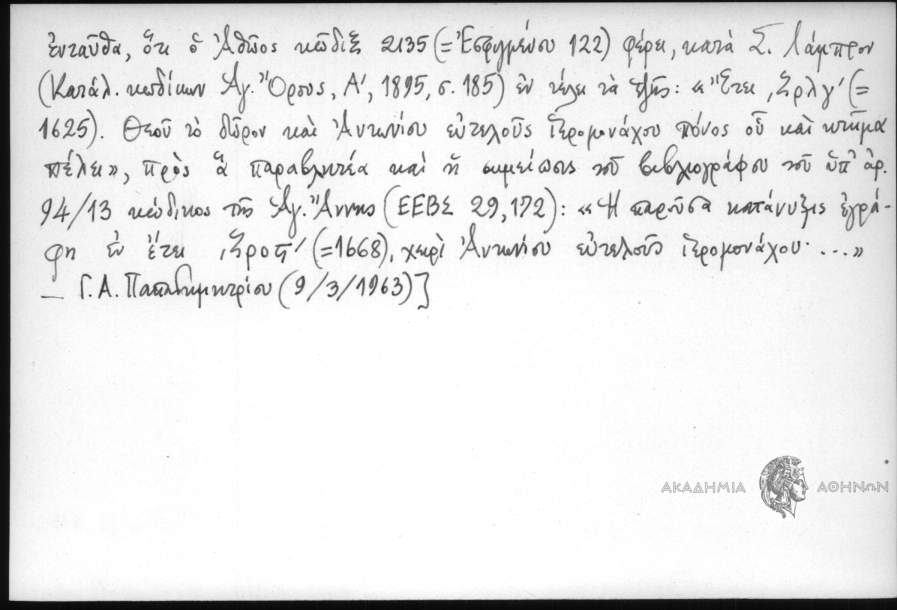 ἐνταῦθα, ὅτι ὁ Ἀθῶος κῶδιξ 2135 (= Ἐσφιγμένου 122) φέρει, κατὰ Σ. Λάμπρον
(Κατάλ. κωδίκων Ἁγ. Ὄρους, Α΄, 1895, σ. 185) ἐν τέλει τὰ ἑξῆς: «Ἔτει ͵ζρλγ΄ (=
1625). Θεοῦ τὸ δῶρον καὶ Ἀντωνίου εὐτελοῦς ἱερομονάχου πόνος οὗ καὶ κτῆμα
πέλει», πρὸς ἃ παραβλητέα καὶ ἡ σημείωσις τοῦ βιβλιογράφου τοῦ ὑπ' ἀρ.
94/13 κώδικος τῆς Ἁγ. Ἄννης (ΕΕΒΣ 29, 172): «Ἡ παροῦσα κατάνυξις ἐγρά-
φη ἐν ἔτει ͵ζροϛ΄ (=1668), χειρὶ Ἀντωνίου εὐτελοῦς ἱερομονάχου· ...»
— Γ. Α. Παπαδημητρίου (9/3/1963)]
ΑΚΑΔΗΜΙΑ ΑΘΗΝΩΝ